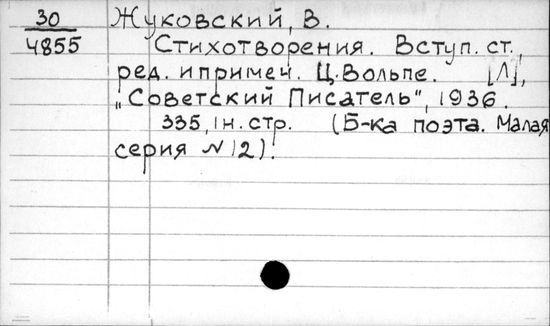 30
4855
Жуковский, В.
Стихотворения. Вступ. ст.,
ред. и примеч. Ц. Вольпе. [Л],
„Советский Писатель", 1936.
335, 1 н. стр. (Б-ка поэта. Малая
серия № 12).